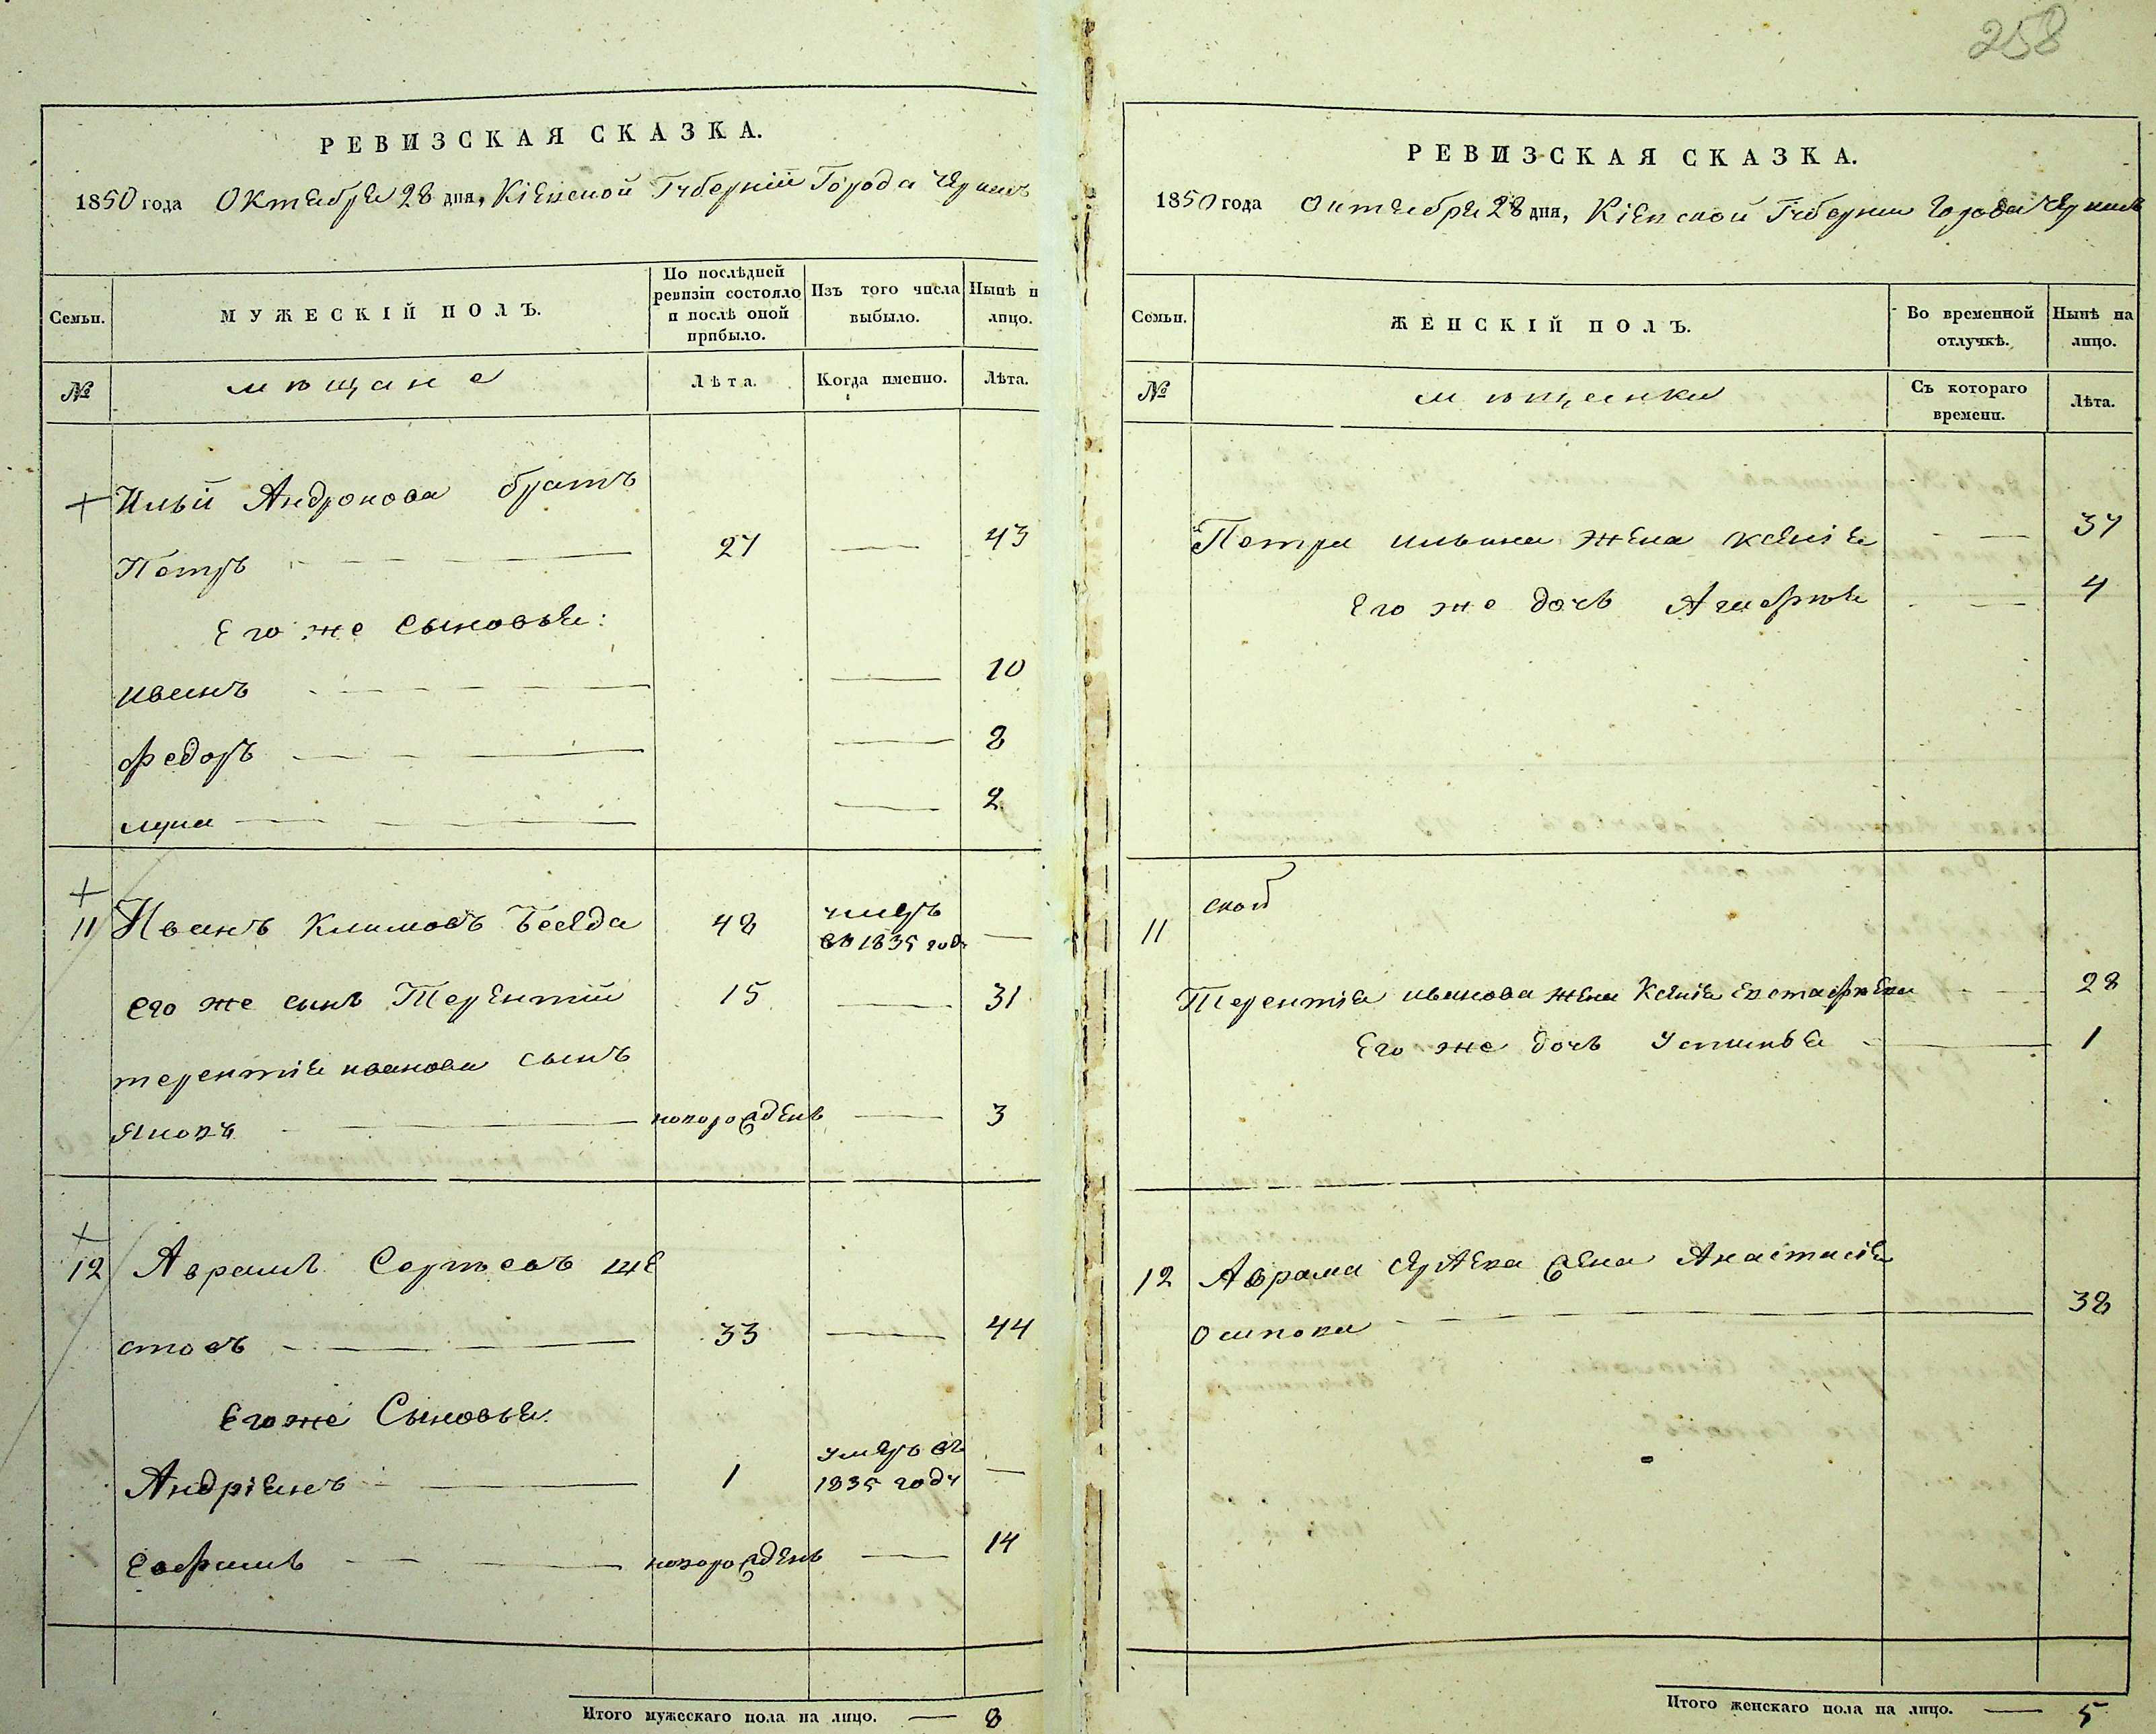 258
РЕВИЗСКАЯ СКАЗКА.
1850 года Октября 28 дня, Кіевской Губерніи Города Черкас
Семьи.
МУЖЕСКІЙ ПОЛЪ.
По послѣдней ревизіи состояло и послѣ оной прибыло.
Изъ того числа выбыло.
Нынѣ н лицо.
№
мѣщане
Лѣта.
Когда именно.
Лѣта.
Ильи Андронова братъ
Петръ 27 — 43
Его же Сыновья:
иванъ — 10
Федоръ — 8
лука — 2
11 Иванъ Климовъ 48 умеръ въ 1835 году —
его же сынъ Терентій 15 — 31
терентія иванова сынъ
Яковъ новорожденъ — 3
12 Аврамъ Сергѣевъ ше
стовъ 33 — 44
Его же Сыновья
Андріянъ 1 умеръ въ 1835 году —
Ефимъ новорожденъ — 14
Итого мужескаго пола на лицо. — 8
РЕВИЗСКАЯ СКАЗКА.
1850 года Октября 28 дня, Кіевской Губерніи Города Черкас
Семьи.
ЖЕНСКІЙ ПОЛЪ.
Во временной отлучкѣ.
Нынѣ на лицо.
№
мѣщанки
Съ котораго времени.
Лѣта.
Петра ильина жена Ксенія — 37
Его же дочь Агафія — 4
11
Терентія иванова жена Ксенія Евстафіева — 28
Его же дочь Устинья — 1
12 Аврама Сергѣева жена Анастасія
Осипова — 38
Итого женскаго пола на лицо. — 5